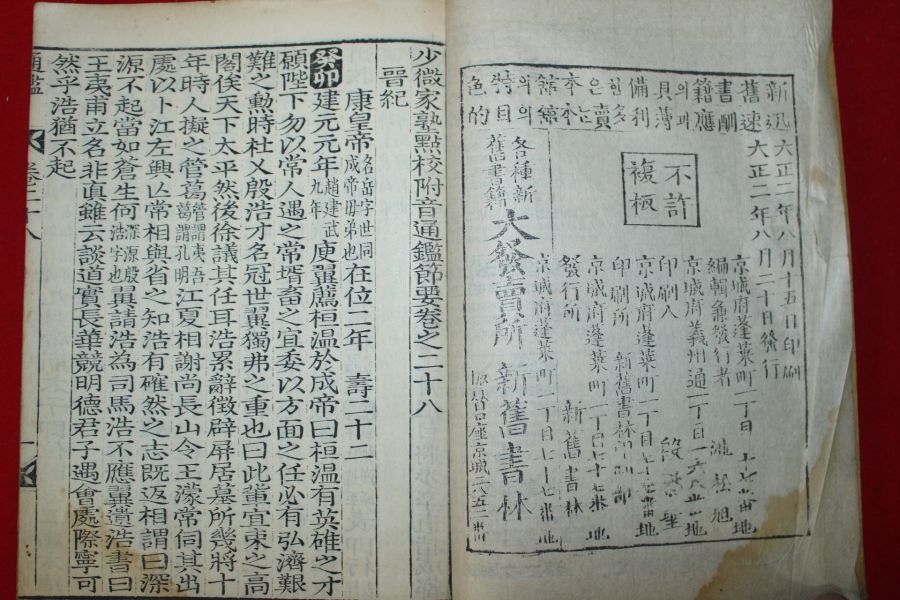 不許
複板
大正二年八月十五日印刷
大正二年八月二十日發行
京城府蓬萊町一丁目七十七番地
編輯兼發行者
京城府義州通一丁目
印刷人
京城府蓬萊町一丁目七十七番地
印刷所 新舊書林印刷部
京城府蓬萊町一丁目七十七番地
發行所 新舊書林
京城府蓬萊町一丁目七十七番地
各種新
舊書籍
大發賣所 新舊書林
少微家塾點校附音通鑑節要卷之二十八
晉紀
康皇帝名岳字世同成帝母弟也在位二年 壽二十二
癸卯建元元年趙建武九年庾翼薦桓溫於成帝曰桓溫有英雄之才
願陛下勿以常人遇之常壻畜之宜委以方面之任必有弘濟艱
難之勳時杜乂殷浩才名冠世翼獨弗之重也曰此輩宜束之高
閣俟天下太平然後徐議其任耳浩累辭徵辟屏居墓所幾將十
年時人擬之管葛管謂夷吾葛謂孔明江夏相謝尚長山令王濛常伺其出
處以卜江左興亡常相與省之知浩有確然之志既返相謂曰深
源不起當如蒼生何深源殷浩字也翼請浩為司馬浩不應翼遺浩書曰
王夷甫立名非真雖云談道實長華競明德君子遇會處際寧可
然乎浩猶不起
通鑑
卷之二十八